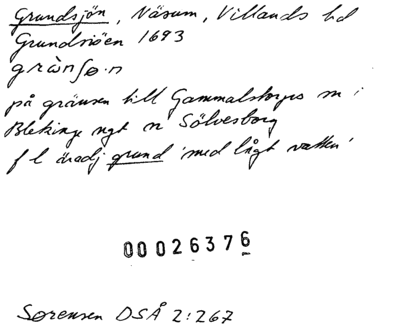 Grundsjön, Näsum, Villands hd
Grundsiöen 1693
grànſø·n
på gränsen till Gammalstorps sn i
Blekinge ngt n Sölvesborg
f l äradj grund 'med lågt vatten'
00026376
Sørensen DSÅ 2:267